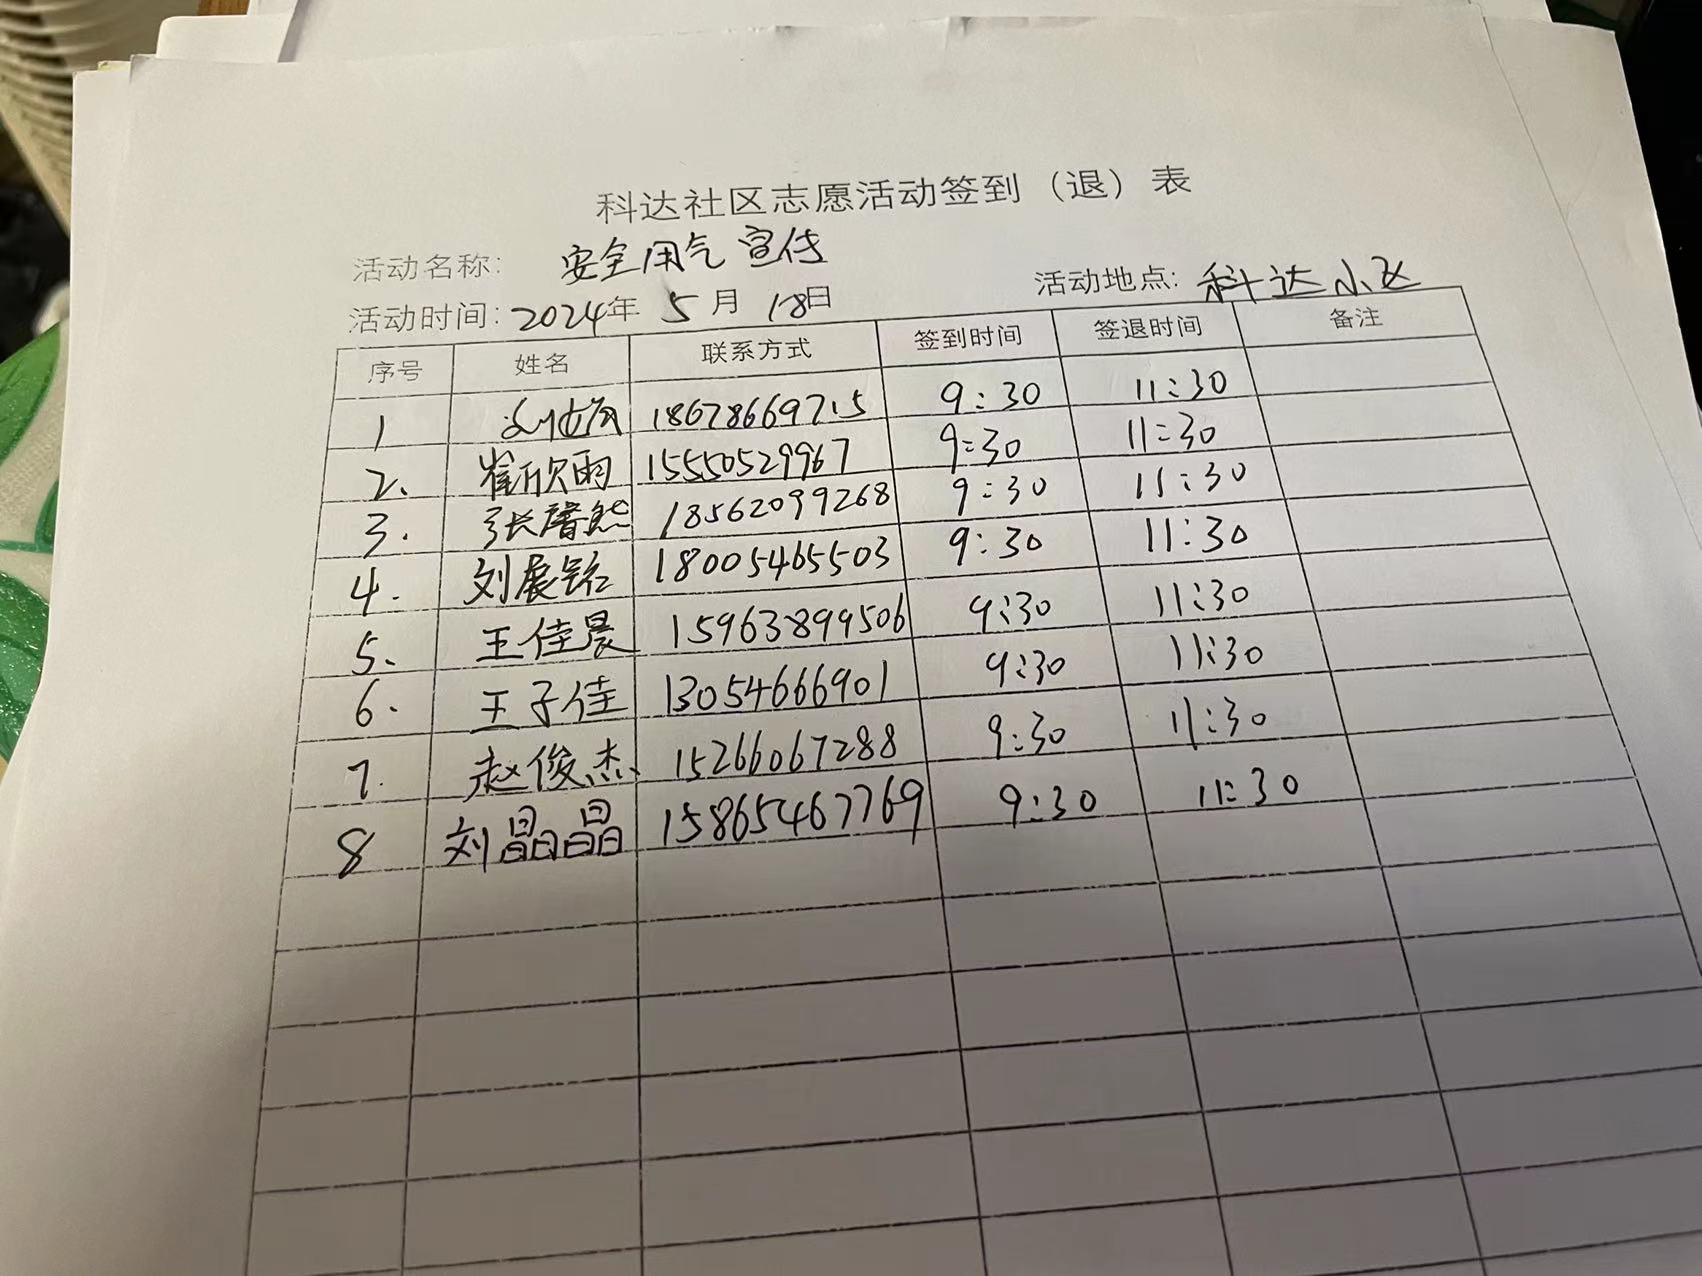 科达社区志愿活动签到（退）表
活动名称： 安全用气宣传
活动时间：2024年 5月 18日 活动地点：科达小区
序号 姓名 联系方式 签到时间 签退时间 备注
1 18678669715 9:30 11:30
2、 崔欣雨 15550529967 9:30 11:30
3. 张馨然 18562099268 9:30 11:30
4. 刘展铭 18005465503 9:30 11:30
5、 王佳晨 15963899506 9:30 11:30
6. 王子佳 13054666901 9:30 11:30
7. 赵俊杰 15266067288 9:30 11:30
8 刘晶晶 15865467769 9:30 11:30